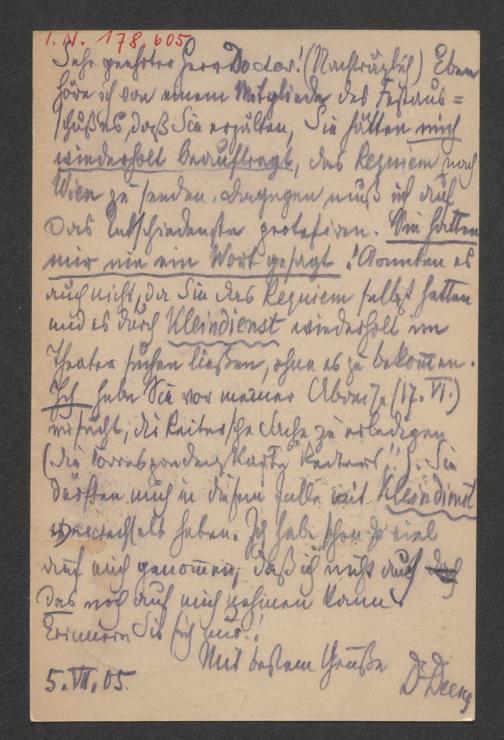 I. N. 178.605
Sehr geehrter Herr Doctor! (Nachträglich) Eben
höre ich von einem Mitgliede des Festaus=
schußes, daß Sie erzälten, Sie hätten mich
wiederholt beauftragt, das Requiem nach
Wien zu senden. Dagegen muß ich auf
das Entschiedenste protestiren. Sie hatten
mir nie ein Wort gesagt! Konnten es
auch nicht, da Sie das Requiem selbst hatten
und es durch Kleindienst wiederholt im
Theater suchen ließen, ohne es zu bekommen.
Ich habe Sie vor meiner Abreise (17. VI.)
ersucht, die Reitersche Sache zu erledigen
(die Correspondenzkarte Reiters!). Sie
dürften mich in diesem Falle mit Kleindienst
verwechselt haben. Ich habe schon so viel
auf mich genommen, daß ich nicht auch
das noch auf mich nehmen kann.
Erinnern Sie sich nur!
Mit bestem Gruße
5. VII. 05. Dr Decsey